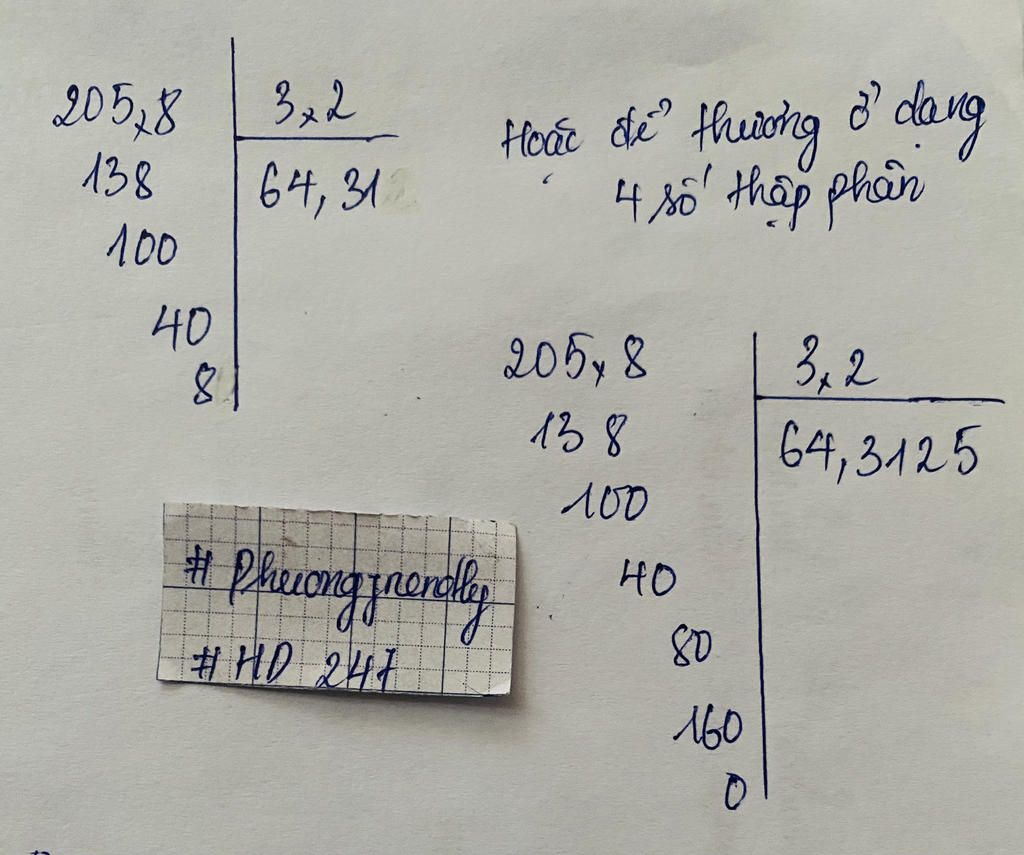 205,8 3,2
138 64,31
100
40
8
Hoặc để thương ở dạng
4 số thập phân
205,8 3,2
138 64,3125
100
40
80
160
0
# Phuongfriendly
# HD 247